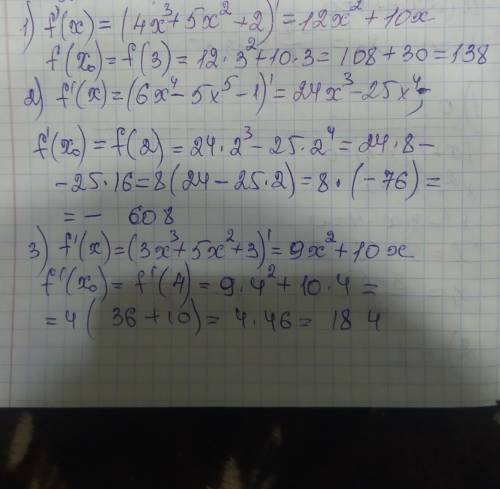 1) f'(x) = (4x³+5x²+2)' = 12x² + 10x
f(x₀) = f(3) = 12·3²+10·3 = 108 + 30 = 138
2) f'(x) = (6x⁴ - 5x⁵ - 1)' = 24x³ - 25x⁴;
f'(x₀) = f(2) = 24·2³ - 25·2⁴ = 24·8 -
- 25·16 = 8(24 - 25·2) = 8·(-76) =
= - 608
3) f'(x) = (3x³+5x²+3)' = 9x² + 10x
f'(x₀) = f'(4) = 9·4² + 10·4 =
= 4( 36 + 10) = 4·46 = 184